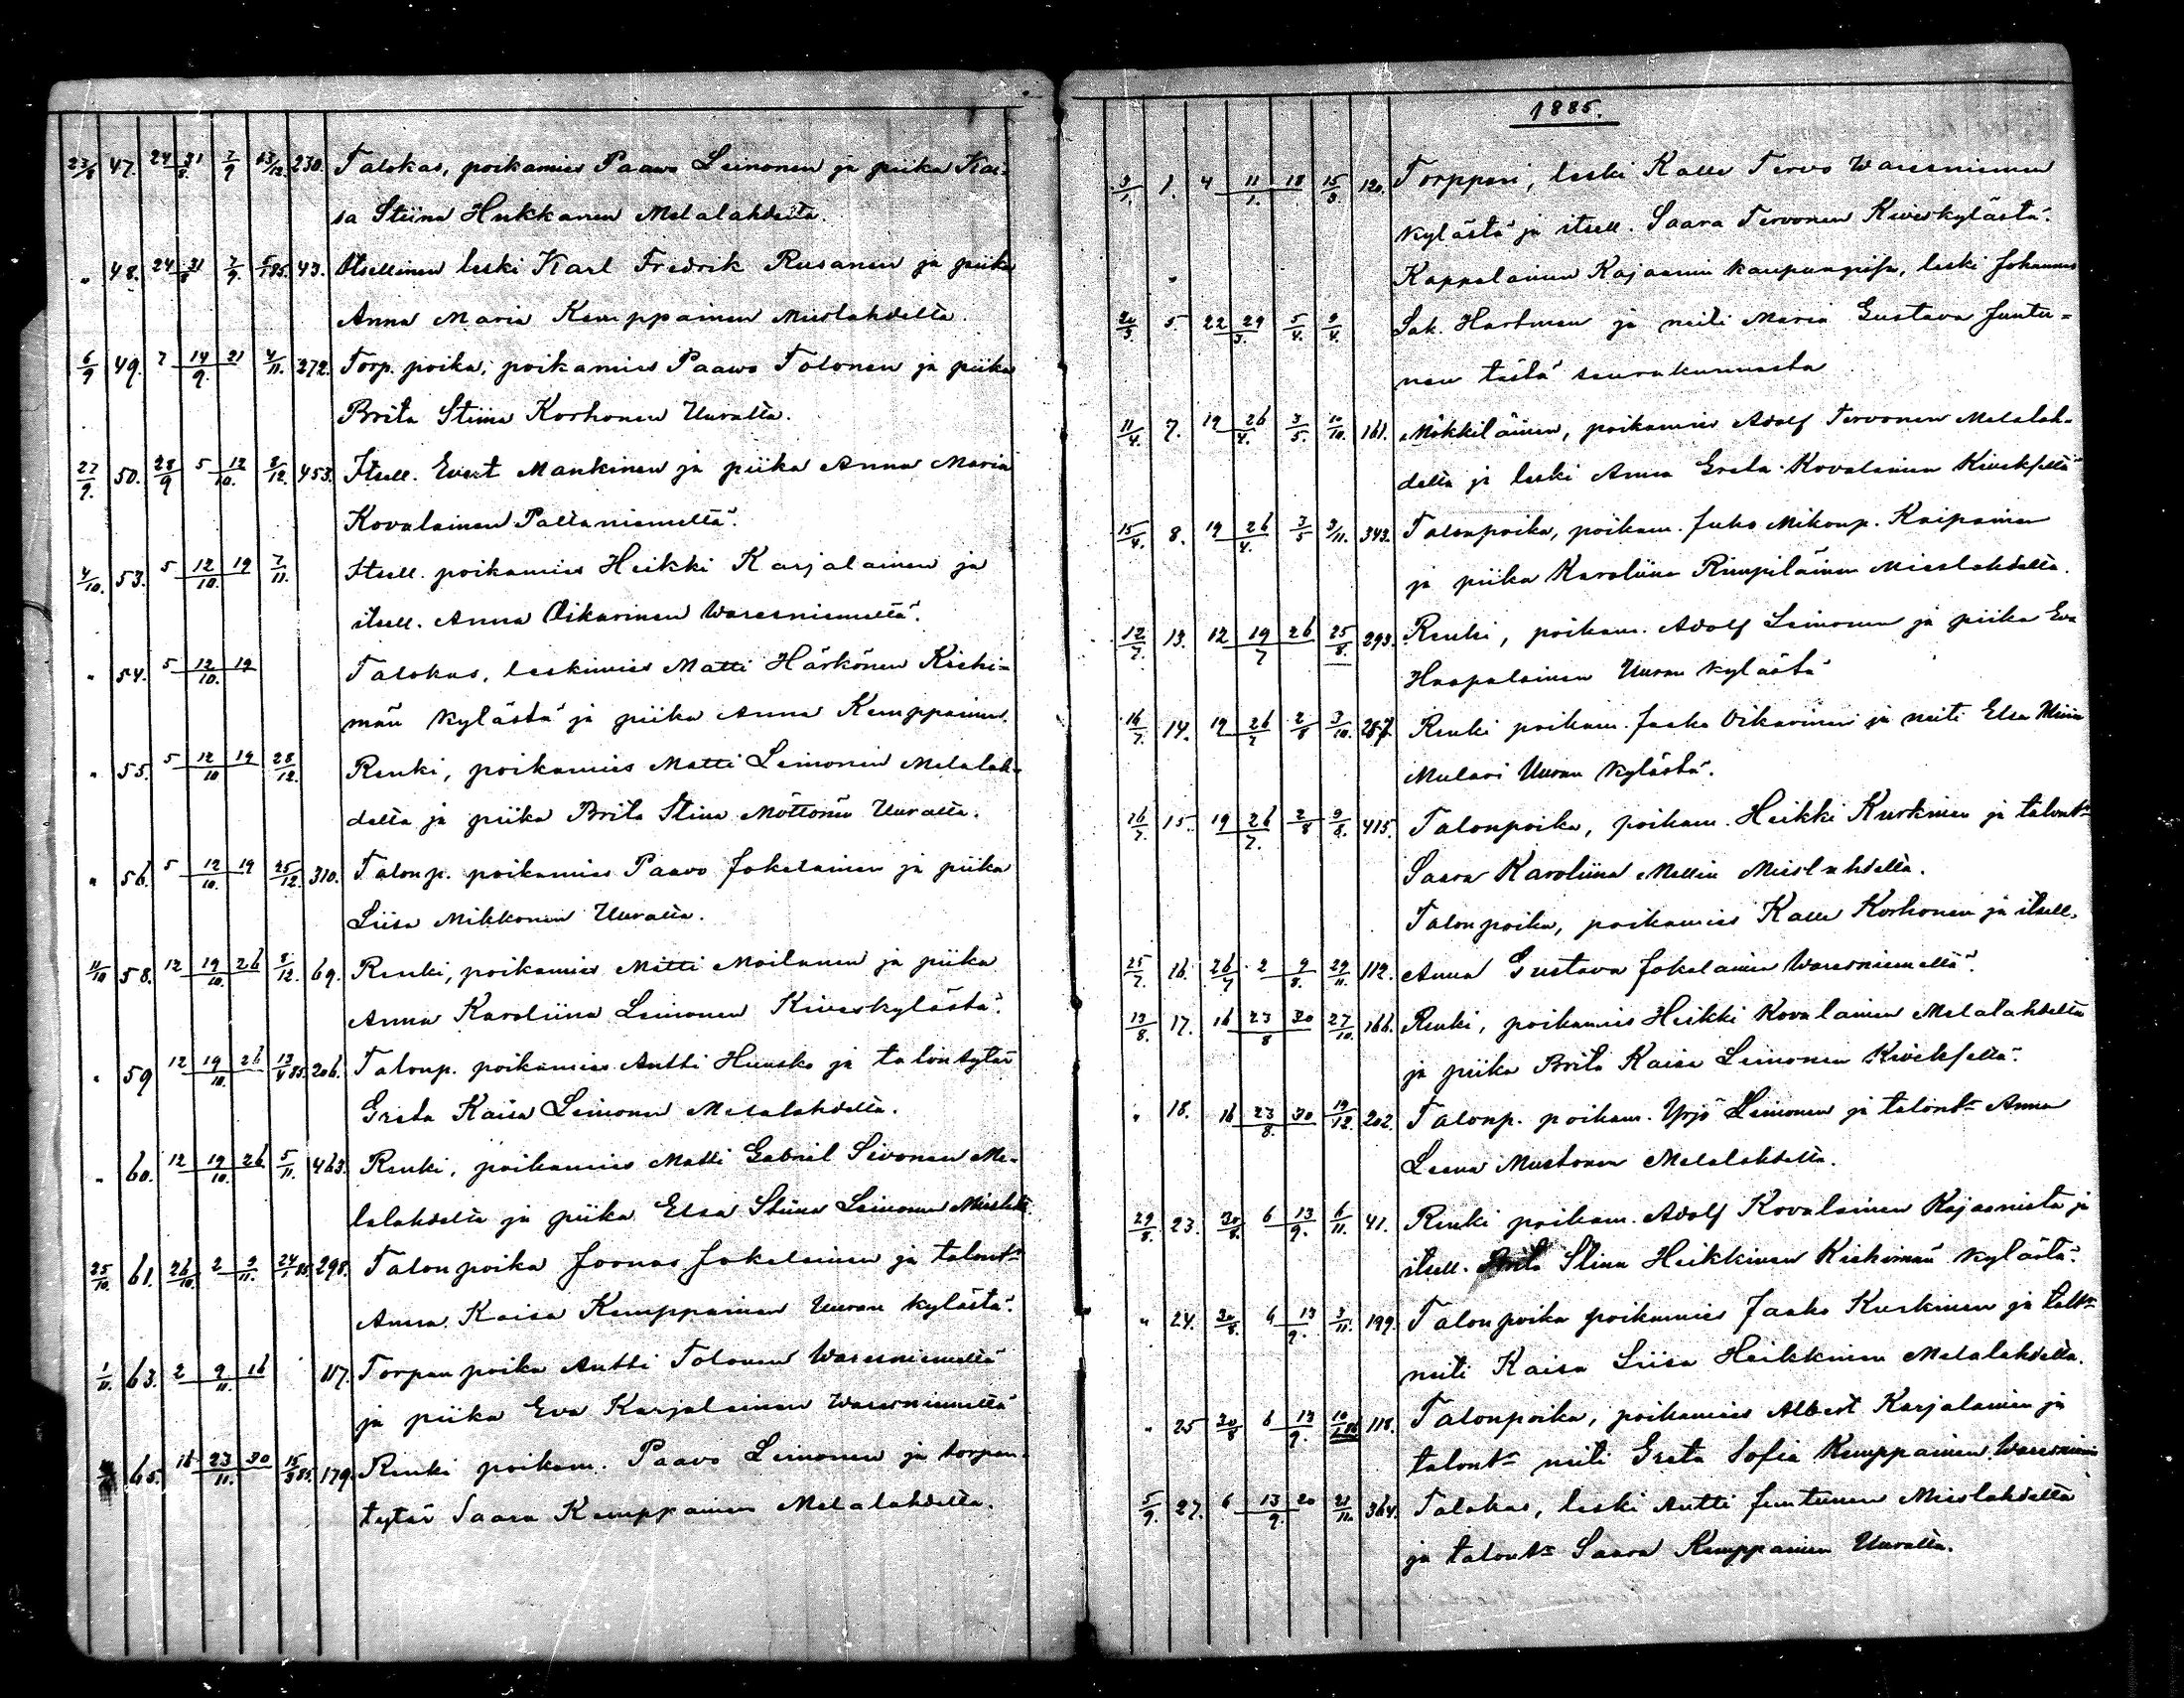 23/8 47. 24 31/8 7/9 13/12 230. Talokas, poikamies Paavo Leinonen ja piika Kai-
sa Stiina Hukkanen Melalahdelta.
" 48. 24 31/8 7/9. 5/1 85. 43. Itsellinen leski Karl Fredrik Rusanen ja piika
Anna Maria Kemppainen Mieslahdelta
6/9 49. 7 14/9. 21 4/11. 272. Torp. poika, poikamies Paavo Tolonen ja piika
Brita Stiina Korhonen Uuralta.
27/9. 50. 28/9 5 12/10. 8/12. 453. Itsell. Evert Mankinen ja piika Anna Maria
Kovalainen Paltaniemeltä.
4/10. 53. 5 12/10. 19 7/11. Itsell. poikamies Heikki Karjalainen ja
itsell. Anna Oikarinen Waresniemeltä.
" 54. 5 12/10. 19 Talokas, leskimies Matti Härkönen Kiehi-
män kylästä ja piika Anna Kemppainen.
" 55. 5 12/10 19 28/12. Renki, poikamies Matti Leinonen Melalah-
delta ja piika Brita Stina Möttönen Uuralta.
" 56. 5 12/10. 19 25/12. 310. Talonp. poikamies Paavo Jokelainen ja piika
Liisa Mikkonen Uuralta.
11/10 58. 12 19/10. 26 8/12. 69. Renki, poikamies Matti Moilanen ja piika
Anna Karoliina Leinonen Kiveskylästä.
" 59 12 19/10. 26 13/4 85. 206. Talonp. poikamies Antti Huusko ja talontytär
Greta Kaisa Leinonen Melalahdelta.
" 60. 12 19/10. 26 5/11. 463. Renki, poikamies Matti Gabriel Sivonen Me-
lalahdelta ja piika Elsa Stiina Leinonen
25/10. 61. 26/10. 2 9/11. 24/1 85. 298. Talonpoika Joonas Jokelainen ja talont:r
Anna Kaisa Kemppainen Uuran kylästä.
1/11. 63. 2 9/11. 16 117. Torpan poika Antti Tolonen Waresniemeltä
ja piika Eva Karjalainen Waresniemeltä
65. 16 23/11. 30 15/3 85. 179. Renki poikam. Paavo Leinonen ja torpan-
tytär Saara Kemppainen Melalahdelta.
1885.
3/1. 1. 4 11/1. 18 15/3 120. Torppari, leski Kalle Tervo Waresniemen
kylästä ja itsell. Saara Tervonen Kiveskylästä.
" Kappalainen Kajaanin kaupungissa, leski Johannes
20/3 5. 22 29/3. 5/4. 9/4. Sak. Hartman ja neiti Maria Gustava Juntu-
nen tästä seurakunnasta
11/4. 7. 19 26/4. 3/5. 10/10. 161. Mökkiläinen, poikamies Adolf Tervonen Melalah-
delta ja leski Anna Greta Kovalainen Kiveksellä
15/4. 8. 19 26/4. 3/5 3/11. 343. Talonpoika, poikam. Juho Mikonp. Kaipainen
ja piika Karoliina Rimpiläinen Mieslahdella.
12/7. 13. 12 19/7 26 25/8. 293. Renki, poikam. Adolf Leinonen ja piika Eva
Haapalainen Uuran kylästä
16/7. 14. 19 26/7 2/8 3/10. 257. Renki poikam. Jaako Oikarinen ja neiti Elsa Miina
Mulari Uuran kylästä.
16/7. 15. 19 26/7. 2/8 9/8. 415. Talonpoika, poikam. Heikki Kurkinen ja talont:r
Saara Karoliina Mellin Mieslahdella.
Talonpoika, poikamies Kalle Korhonen ja itsell.
25/7. 16. 26/7 2 9/8. 29/11. 112. Anna Gustava Jokelainen Waresniemeltä.
13/8. 17. 16 23/8 30 27/10. 166. Renki, poikamies Heikki Kovalainen Melalahdelta
ja piika Brita Kaisa Leinonen Kiveksellä.
" 18. 16 23/8. 30 19/12. 202. Talonp. poikam. Yrjö Leinonen ja talont:r Anna
Leena Mustonen Melalahdelta.
29/8. 23. 30/8. 6 13/9. 6/11. 41. Renki poikam. Adolf Kovalainen Kajaanista ja
itsell. Brita Stina Heikkinen Kiehimän kylästä.
" 24. 30/8. 6 13/9. 3/11. 199. Talonpoika poikamies Jaako Kurkinen ja talt:r
neiti Kaisa Liisa Heikkinen Melalahdella.
" 25 30/8 6 13/9. 118. Talonpoika, poikamies Albert Karjalainen ja
talont:r neiti Greta Sofia Kemppainen Waresniemi
5/9. 27. 6 13/9. 20 21/11. 364. Talokas, leski Antti Juntunen Mieslahdelta
ja talont:r Saara Kemppainen Uuralta.